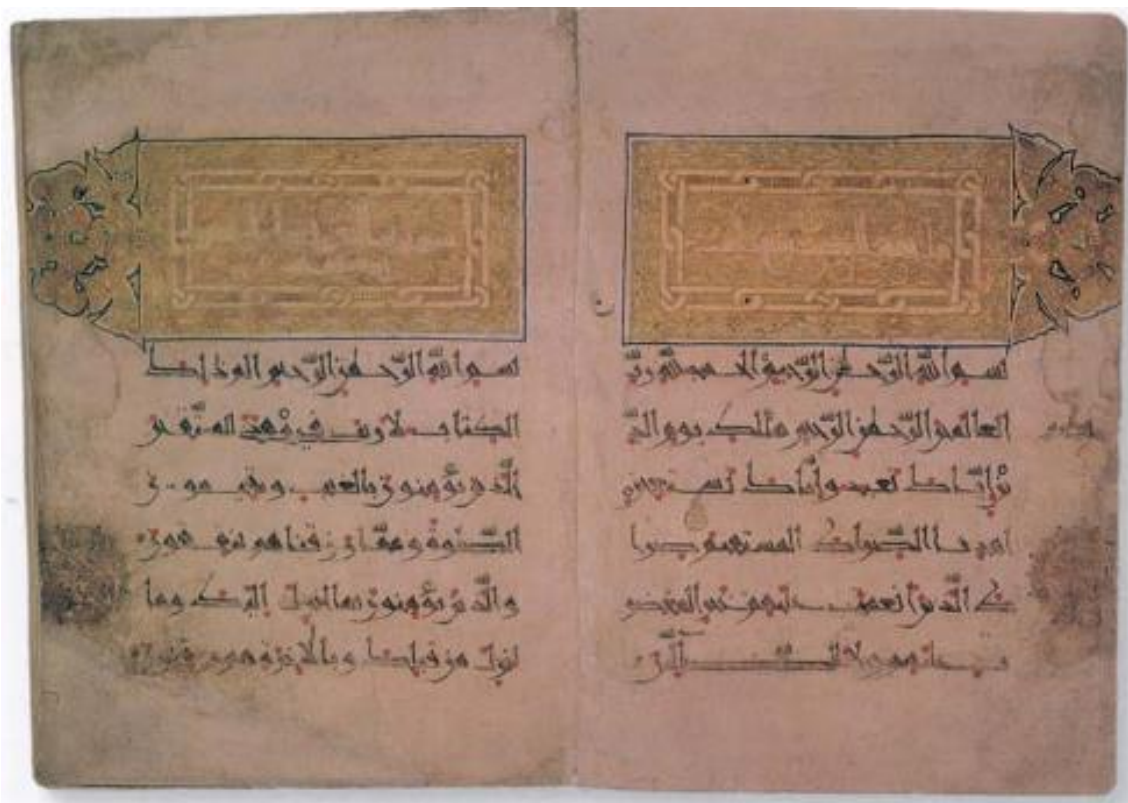 بسم الله الرحمن الرحيم الحمد لله رب
العالمين الرحمن الرحيم مالك يوم الد
ين إياك نعبد وإياك نستعين
اهدنا الصراط المستقيم صرا
ط الذين أنعمت عليهم غير المغضو
ب عليهم ولا الضالين
بسم الله الرحمن الرحيم الم ذلك
الكتاب لا ريب فيه هدى للمتقين
الذين يؤمنون بالغيب ويقيمون
الصلوة ومما رزقناهم ينفقون
والذين يؤمنون بما أنزل إليك وما
أنزل من قبلك وبالآخرة هم يوقنون